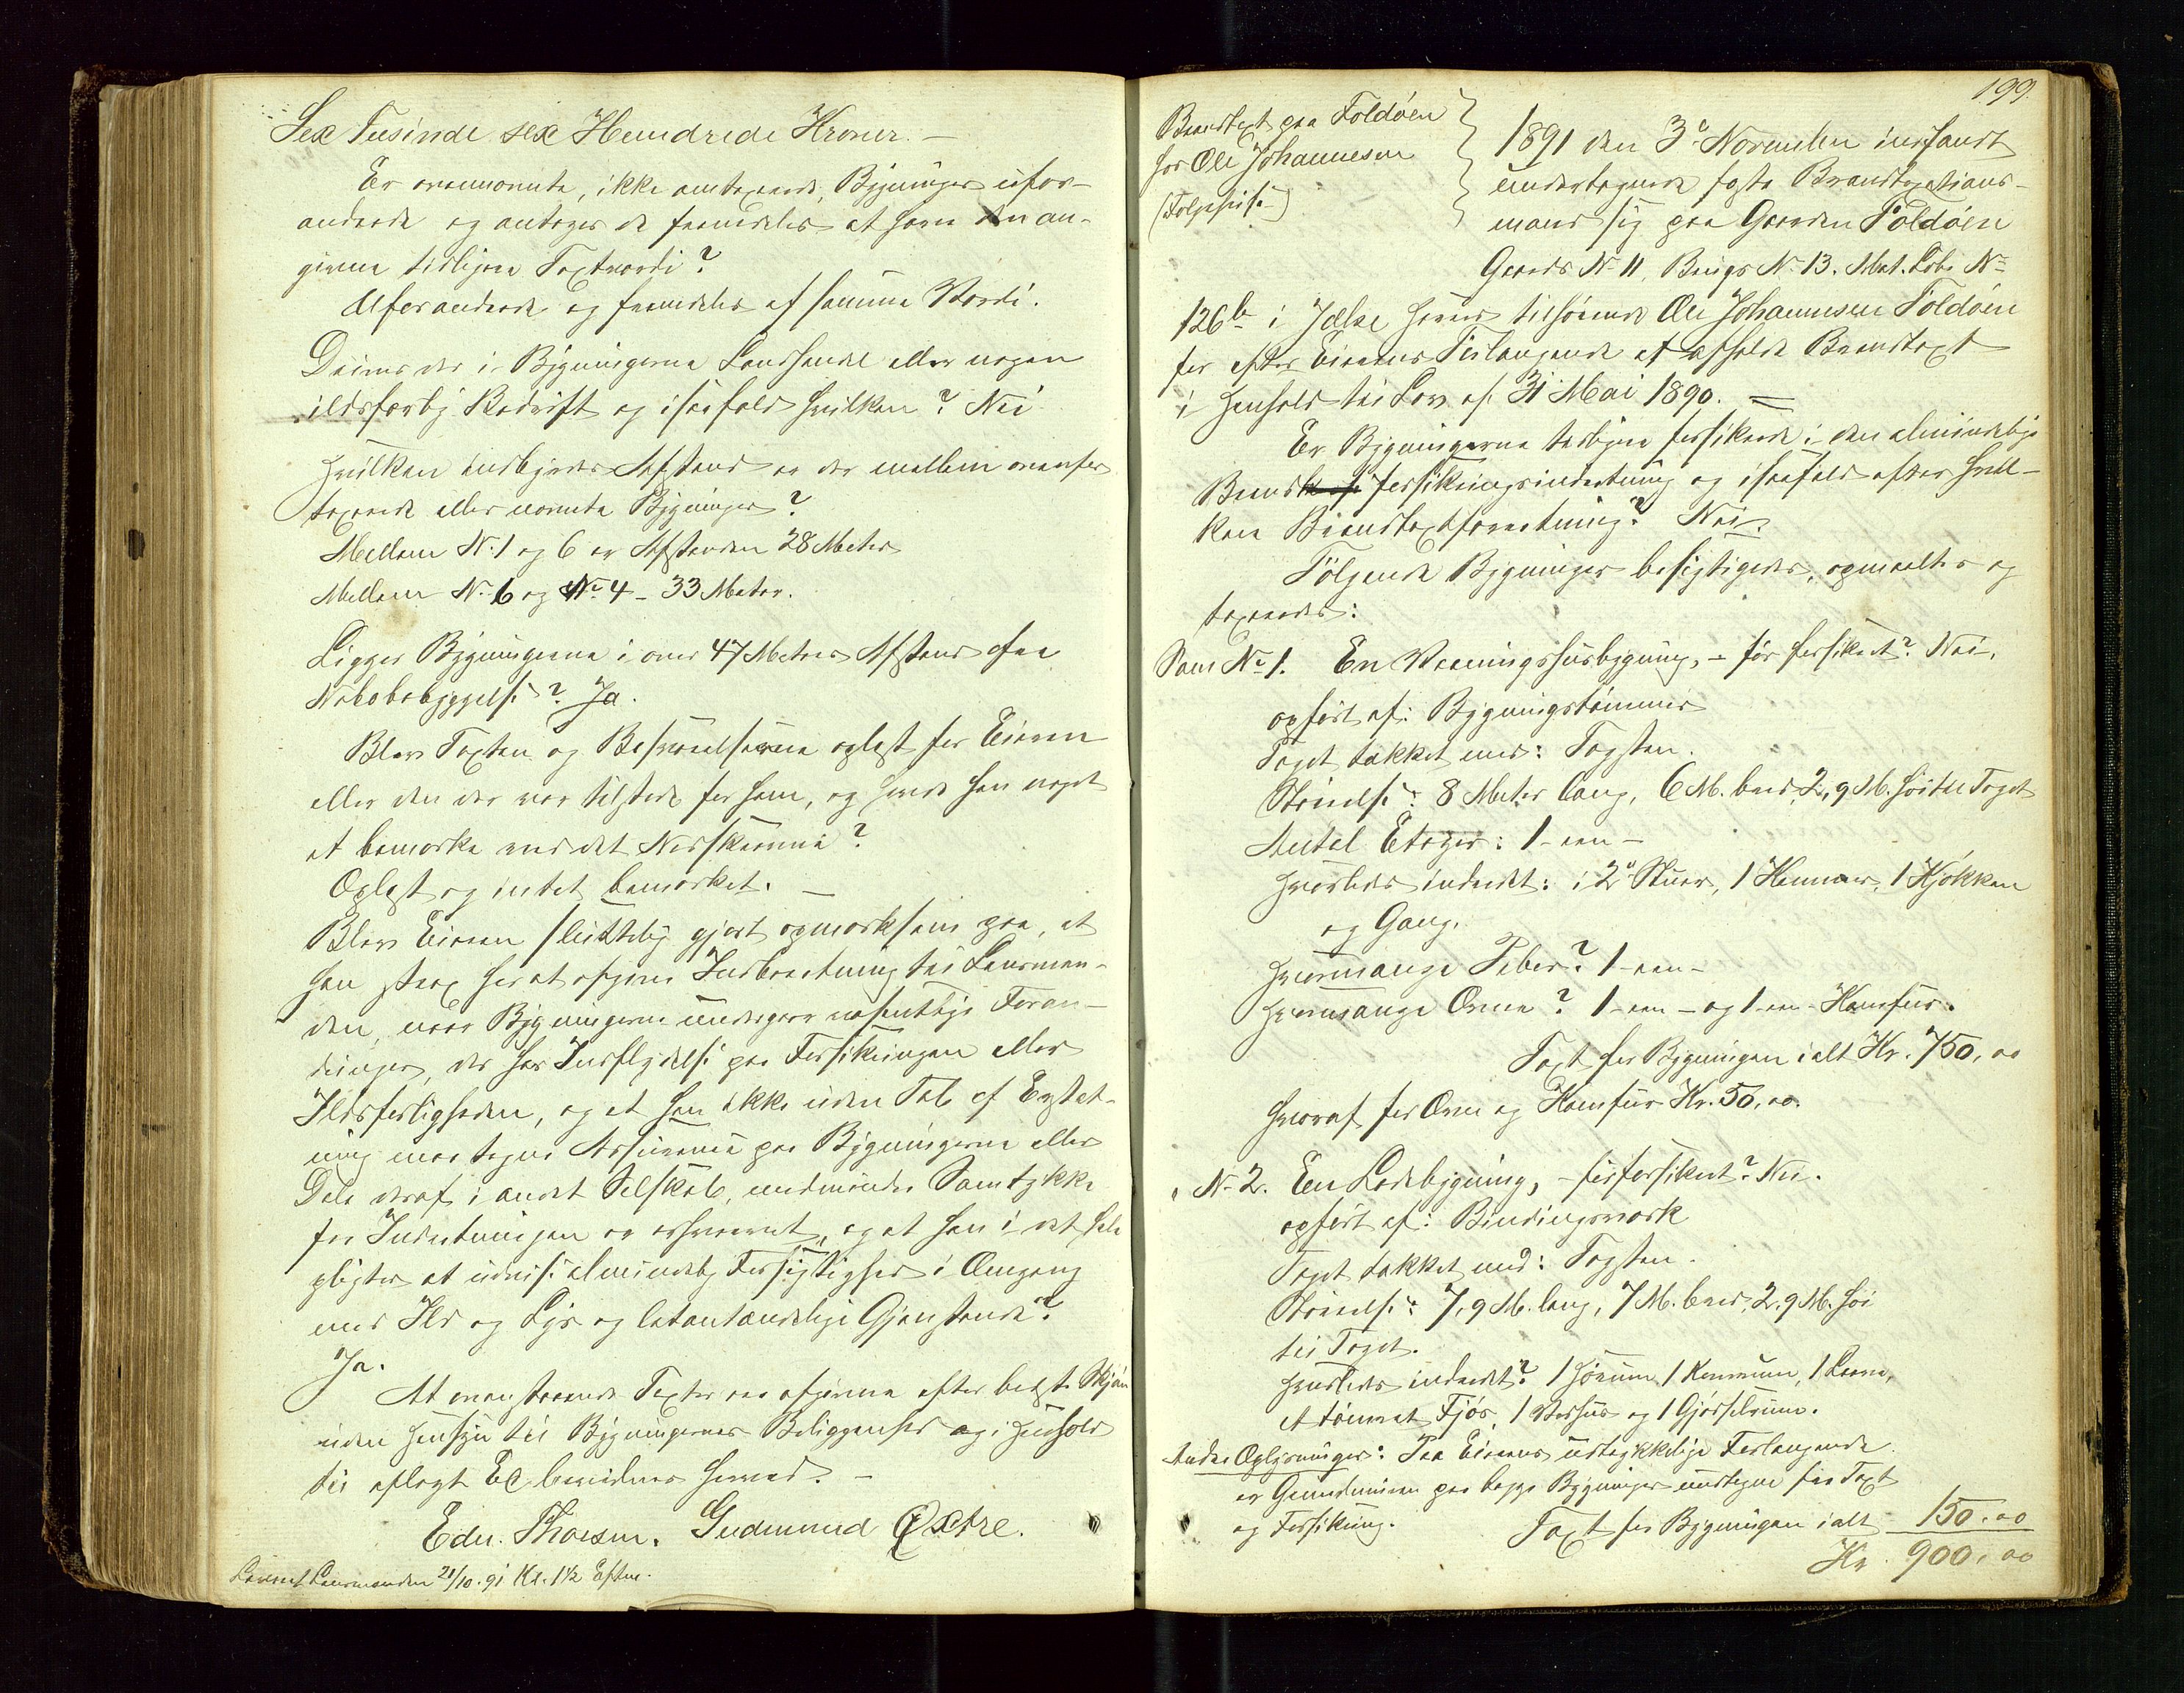 Sex Tusinde sex Hundrede Kroner. –
Er ovennævnte, ikke omtaxerede, Bygninger ufor-
andrede og antages de fremdeles at have den an-
givne tidligere Taxtværdi?
Uforandrede og fremdeles af samme Værdi.
Drives der i Bygningerne Landhandel eller nogen
ildsfarlig Bedrift og i saafald hvilken? Nei
Hvilken indbyrdes Afstand er der mellem ovenfor
taxerede eller nævnte Bygninger?
Mellem No. 1 og 6 er Afstanden 28 Meter
Mellem No. 6 og No. 4 – 33 Meter.
Ligger Bygningerne i over 47 Meters Afstand fra
Nabobebyggelse? Ja.
Blev Taxten og Beskrivelserne oplæst for Eieren
eller den der var tilstede for ham, og havde han noget
at bemærke ved det Nedskrevne?
Oplæst og intet bemærket. –
Blev Eieren sluttelig gjort opmærksom paa, at
han strax har at afgive Indberetning til Lensman-
den, naar Bygningerne undergaar væsentlige Foran-
dringer, der har Indflydelse paa Forsikringen eller
Ildsfarligheden, og at han ikke uden Tab af Erstat-
ning maa tegne Assurance paa Bygningerne eller
Dele deraf i andet Selskab, medmindre Samtykke
fra Indretningen er erhvervet, og at han i det hele
pligter at udvise almindelig Forsigtighed i Omgang
med Ild og Lys og letantændelige Gjenstande?
Ja.
At ovenstaaende Taxter ere afgivne efter bedste Skjøn
uden Hensyn til Bygningernes Beliggenhed og i Henhold
til aflagt Ed bevidnes herved. –
Edv. Thoesen. Gudmund Østre.
Lensmanden 21/10. 91 Kl. 1½ Eftm.
199.
Brandtaxt paa Foldøen
for Ole Johannesen
1891 den 3' November indfandt
undertegnede faste Brandtaxtions-
mænd sig paa Gaarden Foldøen
Gaards No 11, Brugs No 13. Mat. Løbe No
126b i Jelse Herred tilhørende Ole Johannesen Foldøen
for efter Eierens Forlangende at afholde Brandtaxt
i Henhold til Lov af 31 Mai 1890. =
Er Bygningerne tidligere forsikrede i den almindelige
Brandforsikringsindretning og i saafald efter hvil-
ken Brandtaxtforretning? Nei.
Følgende Bygninger besigtigedes, opmaaltes og
taxeredes:
Som No 1. En Vaaningshusbygning, – før forsikret? Nei.
opført af: Bygningstømmer
Taget tækket med: Tagsten.
Størrelse: 8 Meter lang, 6 M. bred, 2,9 M. høi til Taget
Antal Etager: 1 – een –
Hvorledes indredet: i 2' Stuer, 1 Kammer, 1 Kjøkken
og Gang.
Hvormange Piber? 1 – een –
Hvormange Ovne? 1 – een – og 1 – een – Komfur.
Taxt for Bygningen ialt Kr. 750,00
hvoraf for Ovn og Komfur Kr. 50,00.
" No 2. En Ladebygning, – før forsikret? Nei.
opført af: Bindingsværk
Taget tækket med: Tagsten.
Størrelse: 7,9 M. lang, 7 M. bred, 2,9 M. høi
til Taget.
Hvorledes indredet? 1 Hørum, 1 Kornrum, 1 Laave,
et tømret Fjøs, 1 Vedhus og 1 Gjødselrum.
Andre Oplysninger: Paa Eierens udtrykkelige Forlangende
er Grundmuren paa begge Bygninger undtagne fra Taxt
og Forsikring.
Taxt for Bygningen ialt 150,00
Kr. 900,00